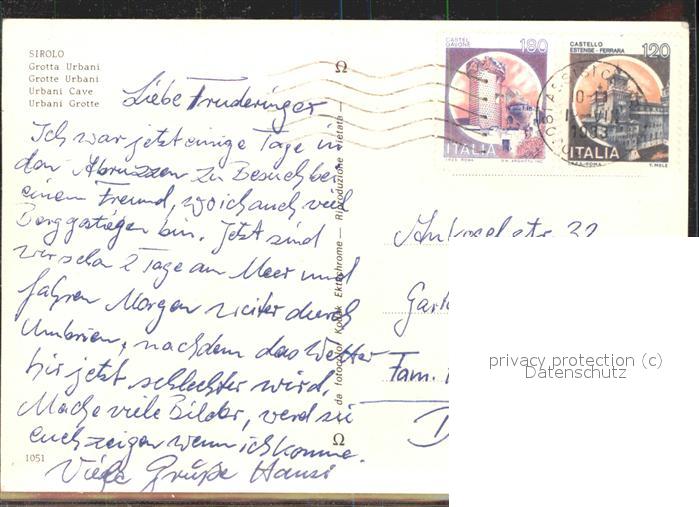 SIROLO
Grotta Urbani
Grotte Urbani
Urban Cave
Urbani Grotte
Liebe Truderinger
Ich war jetzt einige Tage in
den Abruzzen zu Besuch bei
einem Freund, wo ich auch viel
Berggstiegen bin. Jetzt sind
wir schon 2 Tage am Meer und
fahren Morgen weiter durch
Umbrien, nachdem das Wetter
hir jetzt schlechter wird.
Mache viele Bilder, werd sie
euch zeigen wenn ich komme.
Viele Grüße Hansi
1051
da fotocolor Kodak Ektachrome — Riproduzione vietata —
CASTEL
GAVONE
180
ITALIA
CASTELLO
ESTENSE - FERRARA
120
ITALIA
str. 32
Gart
Fam.
D
privacy protection (c)
Datenschutz